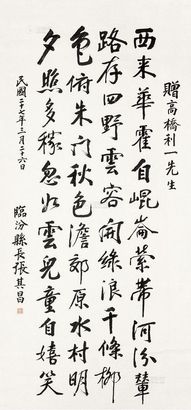 贈高橋利一先生
西来華霍自崐崙縈帶河汾輦
路存四野雲容開綠浪千條柳
色俯朱门秋色澹郊原水村明
夕照多稼忽如雲兒童自嬉笑
民國二十七年三月二十六日
臨汾縣長張其昌